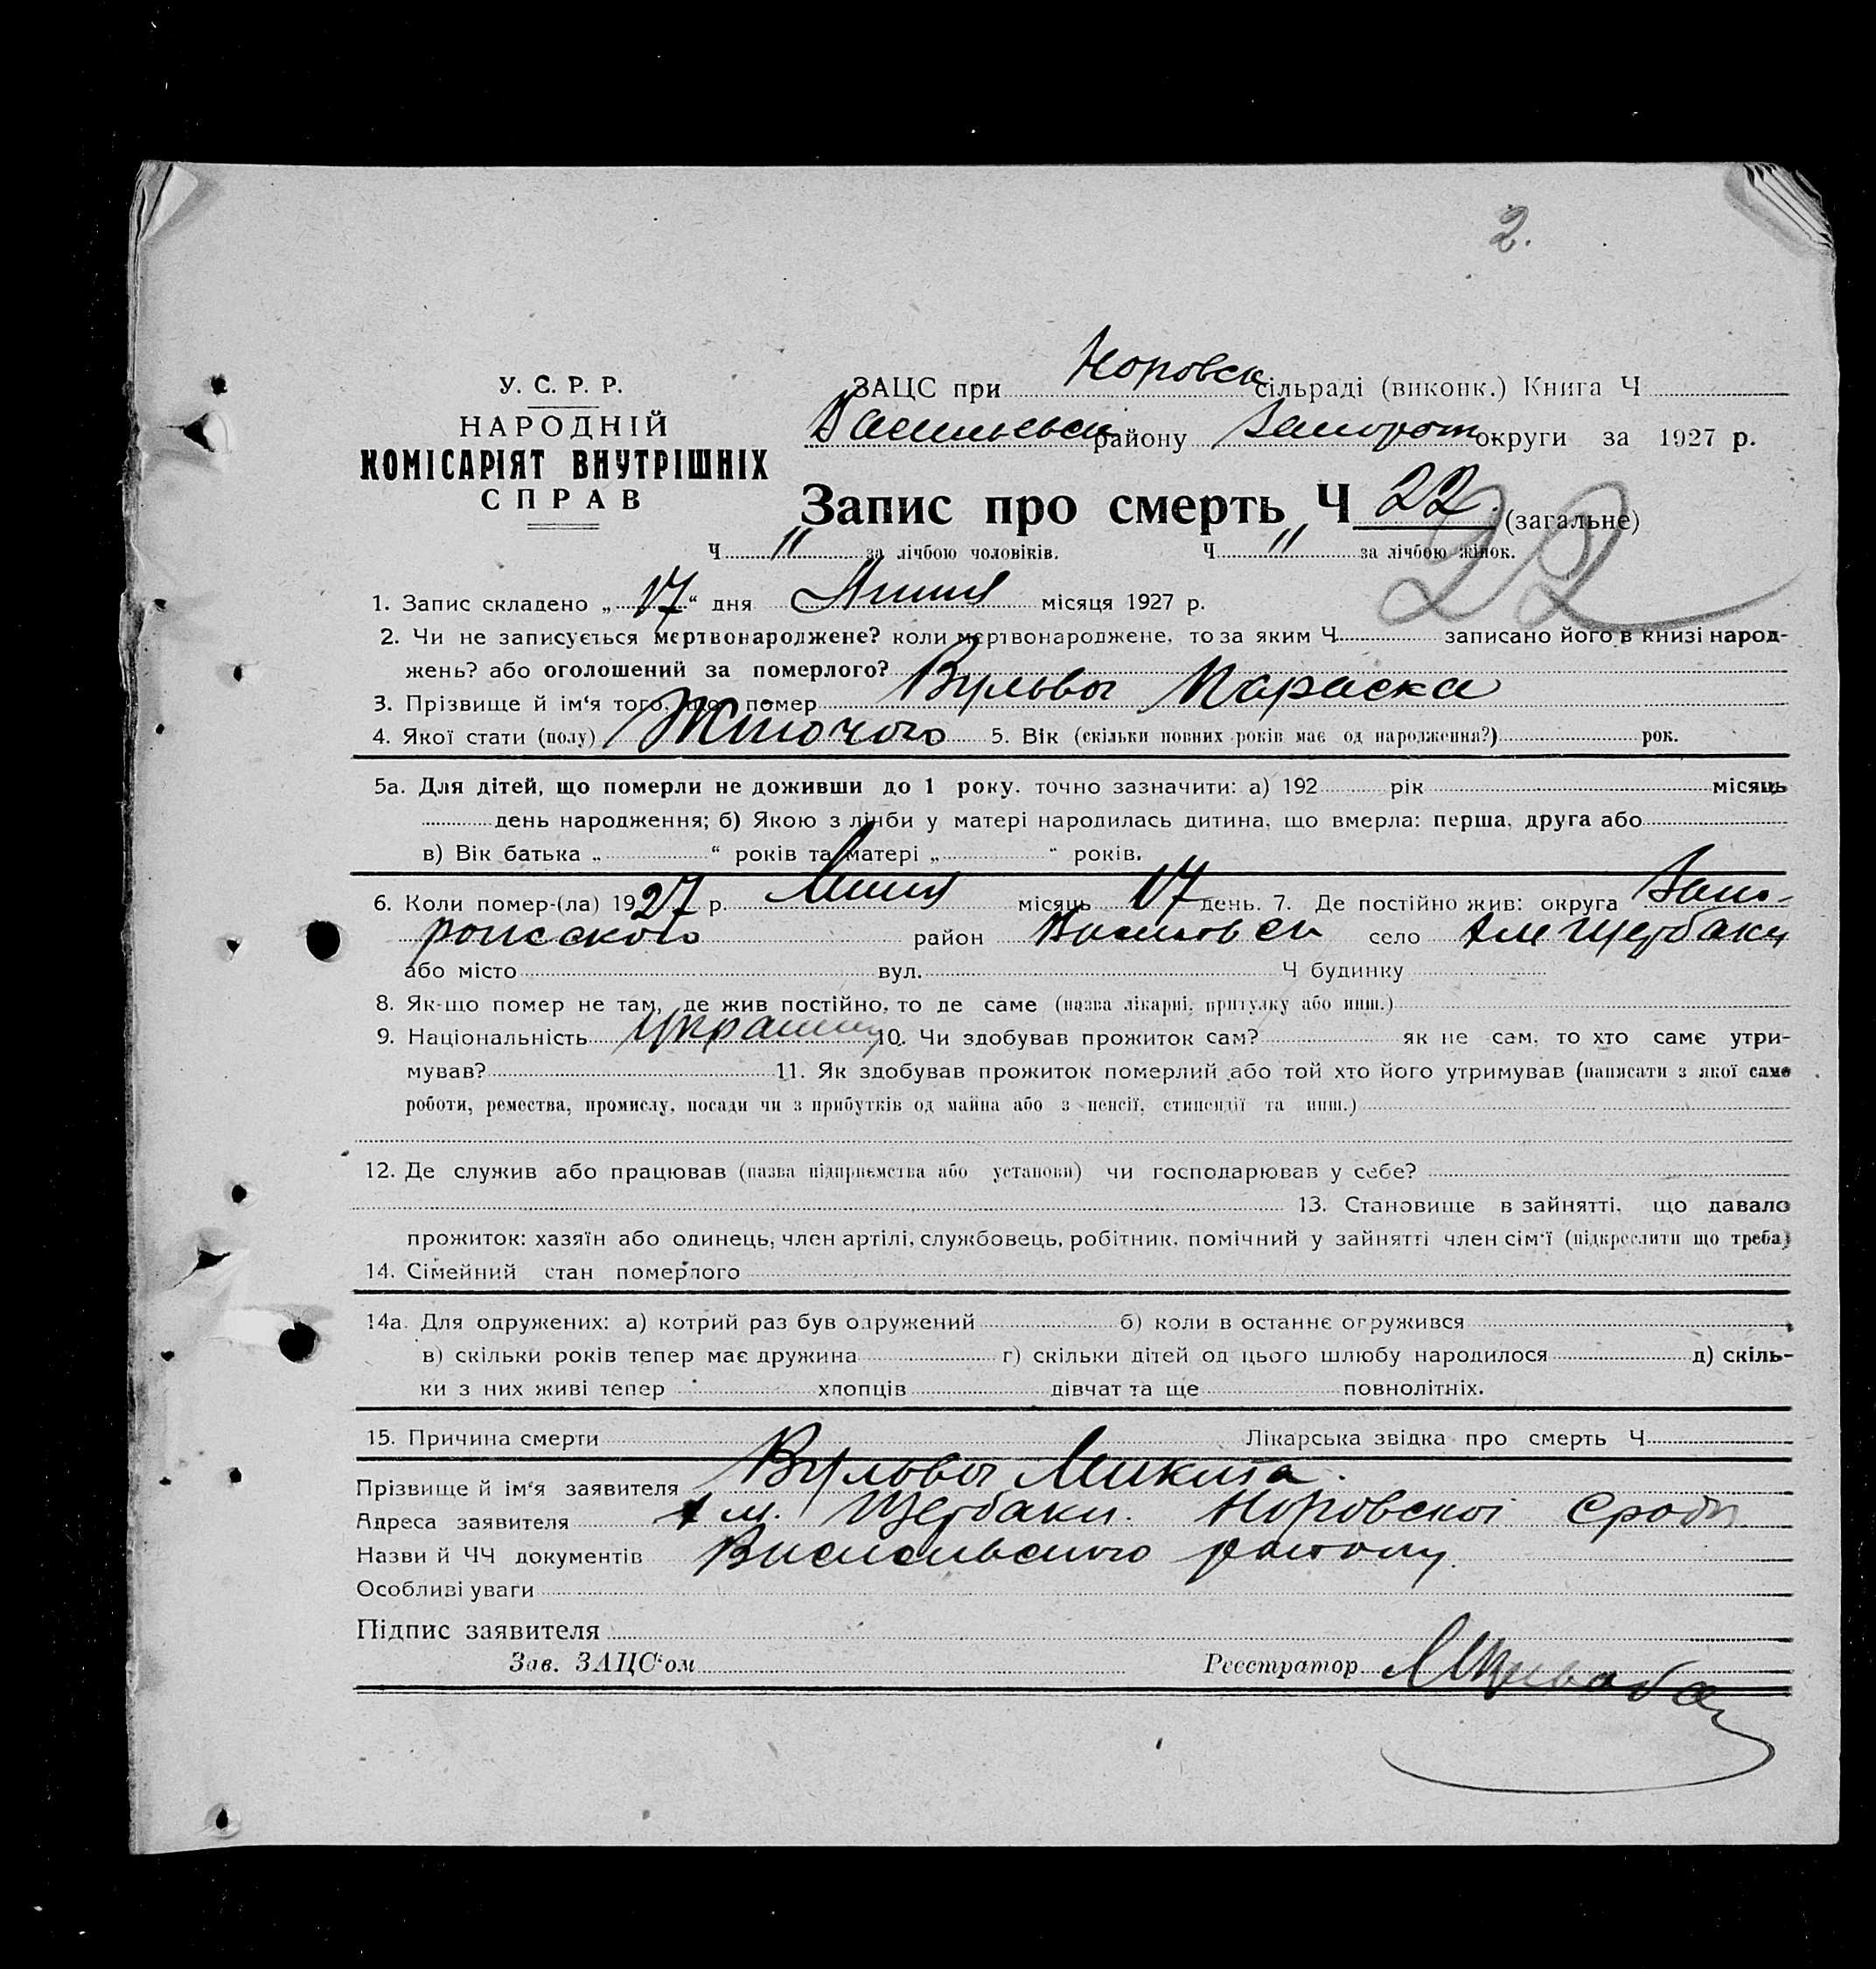 2.
У. С. Р. Р.
НАРОДНІЙ
КОМІСАРІЯТ ВНУТРІШНІХ
СПРАВ
ЗАЦС при сільраді (виконк.) Книга Ч
району округи за 1927 р.
Запис про смерть Ч 22. (загальне)
22
Ч " за лічбою чоловіків. Ч " за лічбою жінок.
1. Запис складено „ 17 “ дня Липня місяця 1927 р.
2. Чи не записується мертвонароджене? коли мертвонароджене, то за яким Ч. записано його в книзі народ-
жень? або оголошений за померлого?
3. Прізвище й ім‘я того, що помер Параска
4. Якої стати (полу) Жіночого 5. Вік (скільки повних років має од народження?) рок.
5а. Для дітей, що померли не доживши до 1 року. точно зазначити: а) 192 рік місяць
день народження; б) Якою з лічби у матері народилась дитина, що вмерла: перша, друга або
в) Вік батька „ “ років та матері „ “ років.
6. Коли помер-(ла) 1927 р. Липня місяць 17 день. 7. Де постійно жив: округа Запо-
район село Щербаки
або місто вул. Ч будинку
8. Як-що помер не там, де жив постійно, то де саме (назва лікарні, притулку або инш.)
9. Національність 10. Чи здобував прожиток сам? як не сам, то хто саме утри-
мував? 11. Як здобував прожиток померлий або той хто його утримував (написати з якої саме
роботи, ремества, промислу, посади чи з прибутків од майна або з пенсії, стипендії та инш.)
12. Де служив або працював (назва підприємства або установи) чи господарював у себе?
13. Становище в зайнятті, що давало
прожиток: хазяїн або одинець, член артілі, службовець, робітник, помічний у зайнятті член сім‘ї (підкреслити що треба)
14. Сімейний стан померлого
14а. Для одружених: а) котрий раз був одружений б) коли в останнє огружився
в) скільки років тепер має дружина г) скільки дітей од цього шлюбу народилося д) скіль-
ки з них живі тепер хлопців дівчат та ще повнолітніх.
15. Причина смерти Лікарська звідка про смерть Ч
Прізвище й ім‘я заявителя Микита.
Адреса заявителя Щербаки.
Назви й ЧЧ документів району.
Особливі уваги
Підпис заявителя
Зав. ЗАЦС‘ом Реєстратор